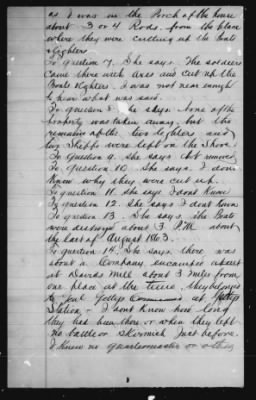 as I was on the Porch of the house
about 3 or 4 Rods from the place
where they were cutting up the Boats
& lighters
To question 7. She says. The soldiers
came there with axes and cut up the
Boats & lighters. I was not near enough
to hear what was said.
To question 8. She says. None of the
property was taken away. but the
remains of the two lighters and
two Skiffs were left on the Shore
To question 9. she says Not removed
To question 10. she says I don't
know why they were cut up.
To question 11. she says I dont know
To question 12. She says I dont know
To question 13. She says. the Boats
were destroyed about 3 P.M. about
the last of August 1863.
To question 14. She says. there was
about a Company encamped at
at Davids Mill about 3 miles from
our place at the time. they belonged
to Genl Command at
Station. I dont know how long
they had been there or when they left
no battle or skirmish just before.
I knew no quartermaster or other